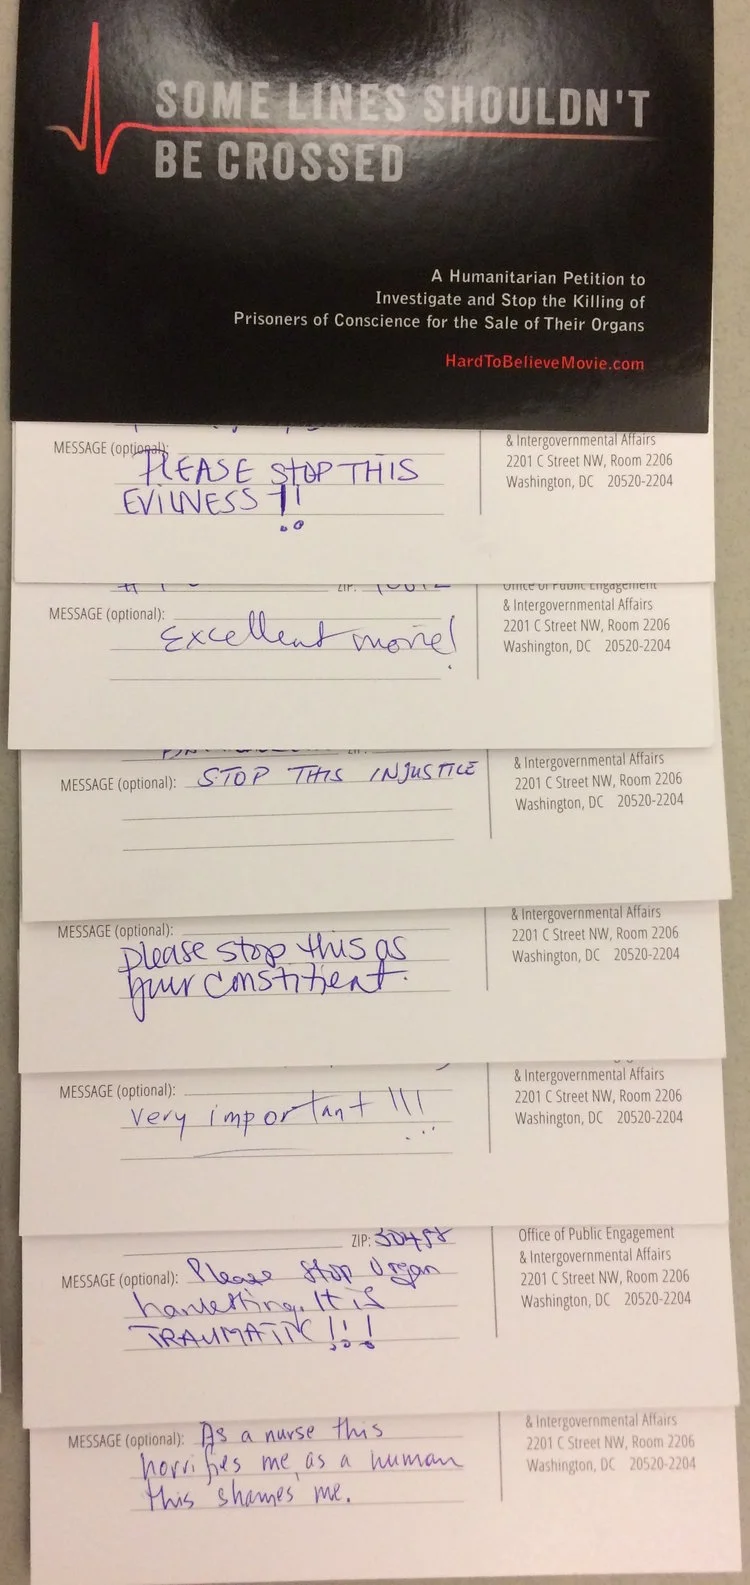 SOME LINES SHOULDN'T
BE CROSSED
A Humanitarian Petition to
Investigate and Stop the Killing of
Prisoners of Conscience for the Sale of Their Organs
HardToBelieveMovie.com
MESSAGE (optional):
PLEASE STOP THIS
EVILNESS !!
& Intergovernmental Affairs
2201 C Street NW, Room 2206
Washington, DC 20520-2204
ZIP:
MESSAGE (optional):
Excellent movie!
Office of Public Engagement
& Intergovernmental Affairs
2201 C Street NW, Room 2206
Washington, DC 20520-2204
MESSAGE (optional): STOP THIS INJUSTICE
& Intergovernmental Affairs
2201 C Street NW, Room 2206
Washington, DC 20520-2204
MESSAGE (optional):
please stop this as
your constitient.
& Intergovernmental Affairs
2201 C Street NW, Room 2206
Washington, DC 20520-2204
MESSAGE (optional):
very important !!!
& Intergovernmental Affairs
2201 C Street NW, Room 2206
Washington, DC 20520-2204
ZIP: 30458
MESSAGE (optional): Please Stop Organ
harvesting. It is
TRAUMATIC !!!
Office of Public Engagement
& Intergovernmental Affairs
2201 C Street NW, Room 2206
Washington, DC 20520-2204
MESSAGE (optional): As a nurse this
horrifies me, as a human
this shames me.
& Intergovernmental Affairs
2201 C Street NW, Room 2206
Washington, DC 20520-2204